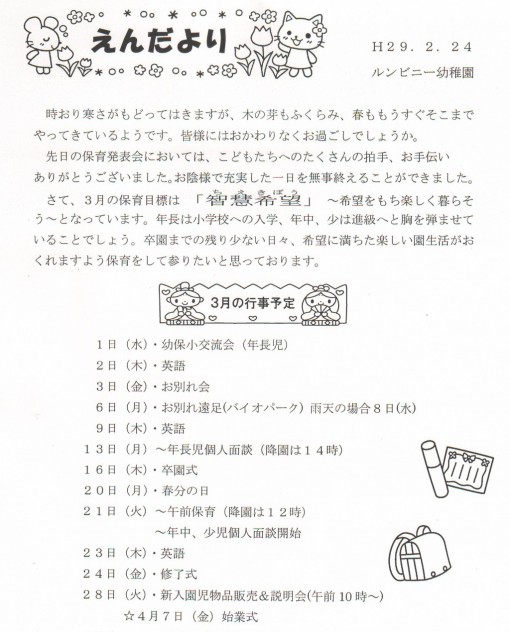 えんだより
H29．2．24
ルンビニー幼稚園
時おり寒さがもどってはきますが、木の芽もふくらみ、春ももうすぐそこまで
やってきているようです。皆様にはおかわりなくお過ごしでしょうか。
先日の保育発表会においては、こどもたちへのたくさんの拍手、お手伝い
ありがとうございました。お陰様で充実した一日を無事終えることができました。
さて、３月の保育目標は　「智慧希望」　～希望をもち楽しく暮らそ
う～となっています。年長は小学校への入学、年中、少は進級へと胸を弾ませて
いることでしょう。卒園までの残り少ない日々、希望に満ちた楽しい園生活がお
くれますよう保育をして参りたいと思っております。
３月の行事予定
１日（水）・幼保小交流会（年長児）
２日（木）・英語
３日（金）・お別れ会
６日（月）・お別れ遠足(バイオパーク) 雨天の場合８日(水)
９日（木）・英語
１３日（月）～年長児個人面談（降園は１４時）
１６日（木）・卒園式
２０日（月）・春分の日
２１日（火）～午前保育（降園は１２時）
～年中、少児個人面談開始
２３日（木）・英語
２４日（金）・修了式
２８日（火）・新入園児物品販売＆説明会(午前10時～)
☆４月７日（金）始業式